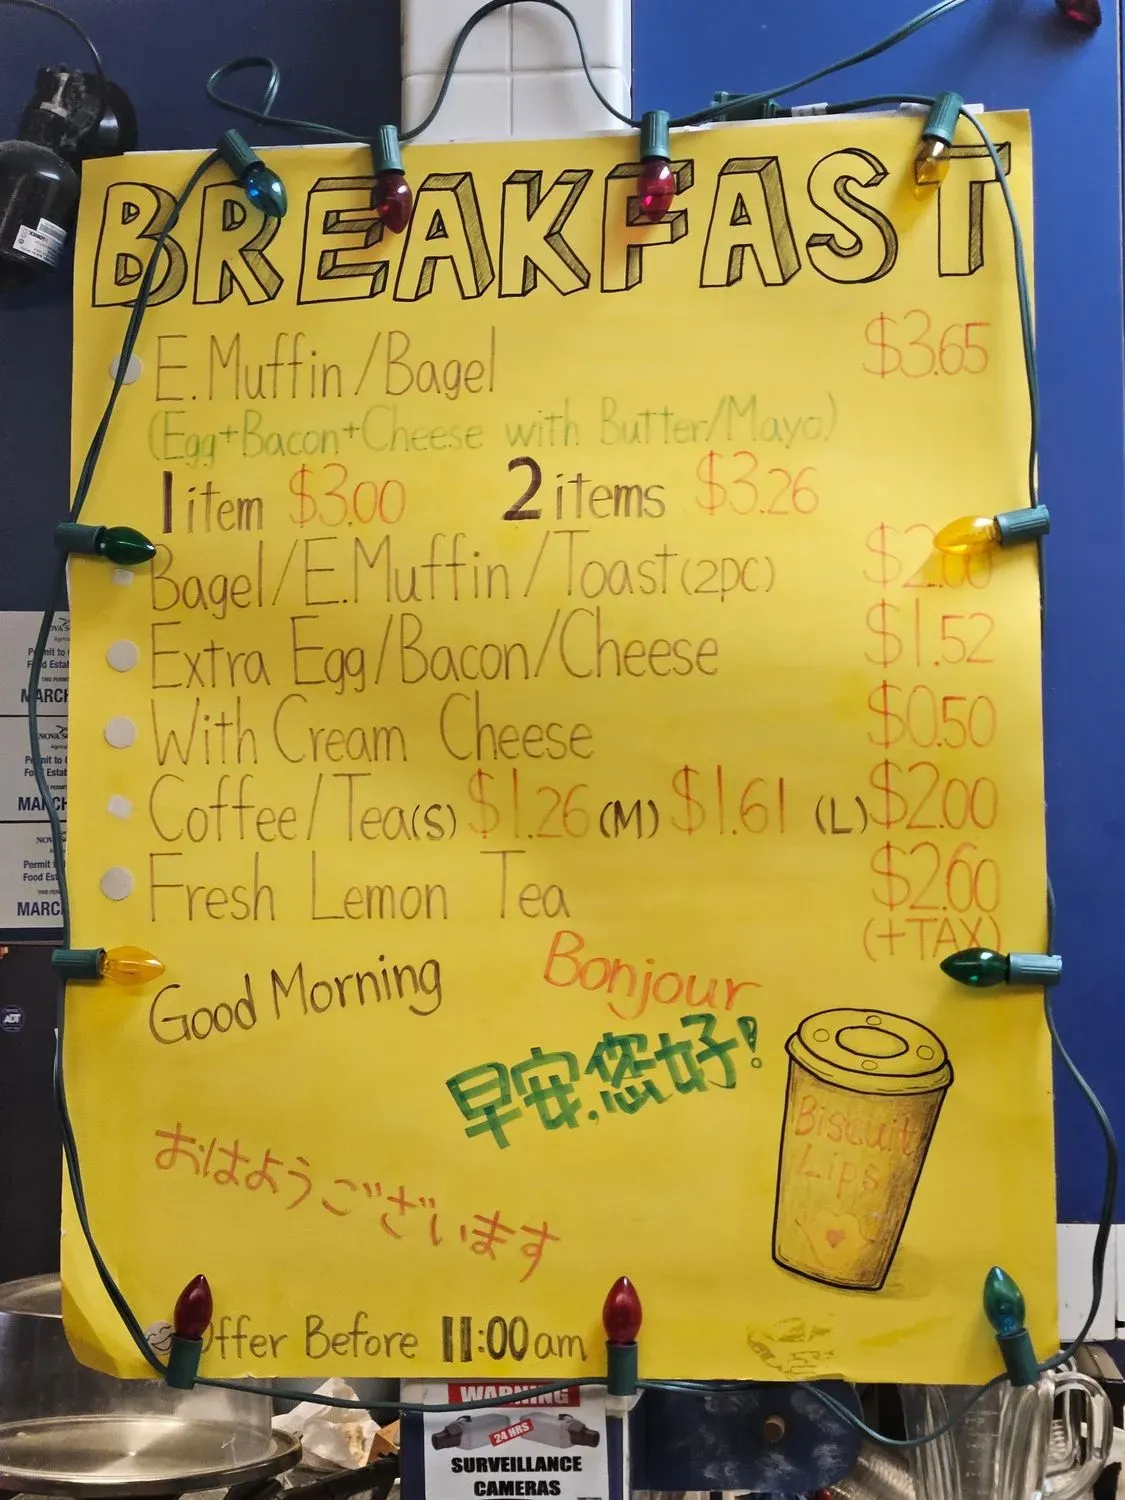 BREAKFAST
E.Muffin/Bagel $3.65
(Egg+Bacon+Cheese with Butter/Mayo)
1 item $3.00 2 items $3.26
Bagel/E.Muffin/Toast(2pc) $2.00
Extra Egg/Bacon/Cheese $1.52
With Cream Cheese $0.50
Coffee/Tea(S) $1.26 (M) $1.61 (L) $2.00
Fresh Lemon Tea $2.60
(+TAX)
Good Morning Bonjour
早安,您好!
Biscuit
Lips
おはようございます
Offer Before 11:00am
WARNING
24 HRS
SURVEILLANCE
CAMERAS
ADT
MARCH
MARCH
MARC